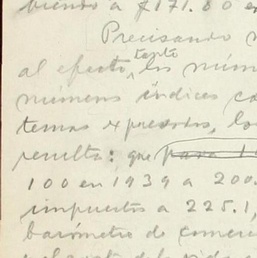 biendo a $171.80 en
Precisando
tanto
al efecto, los núm
números índices co
temas expresados, lo
resulta: que para
100 en 1939 a 200.
impuestos a 225.1,
barómetro de comerc